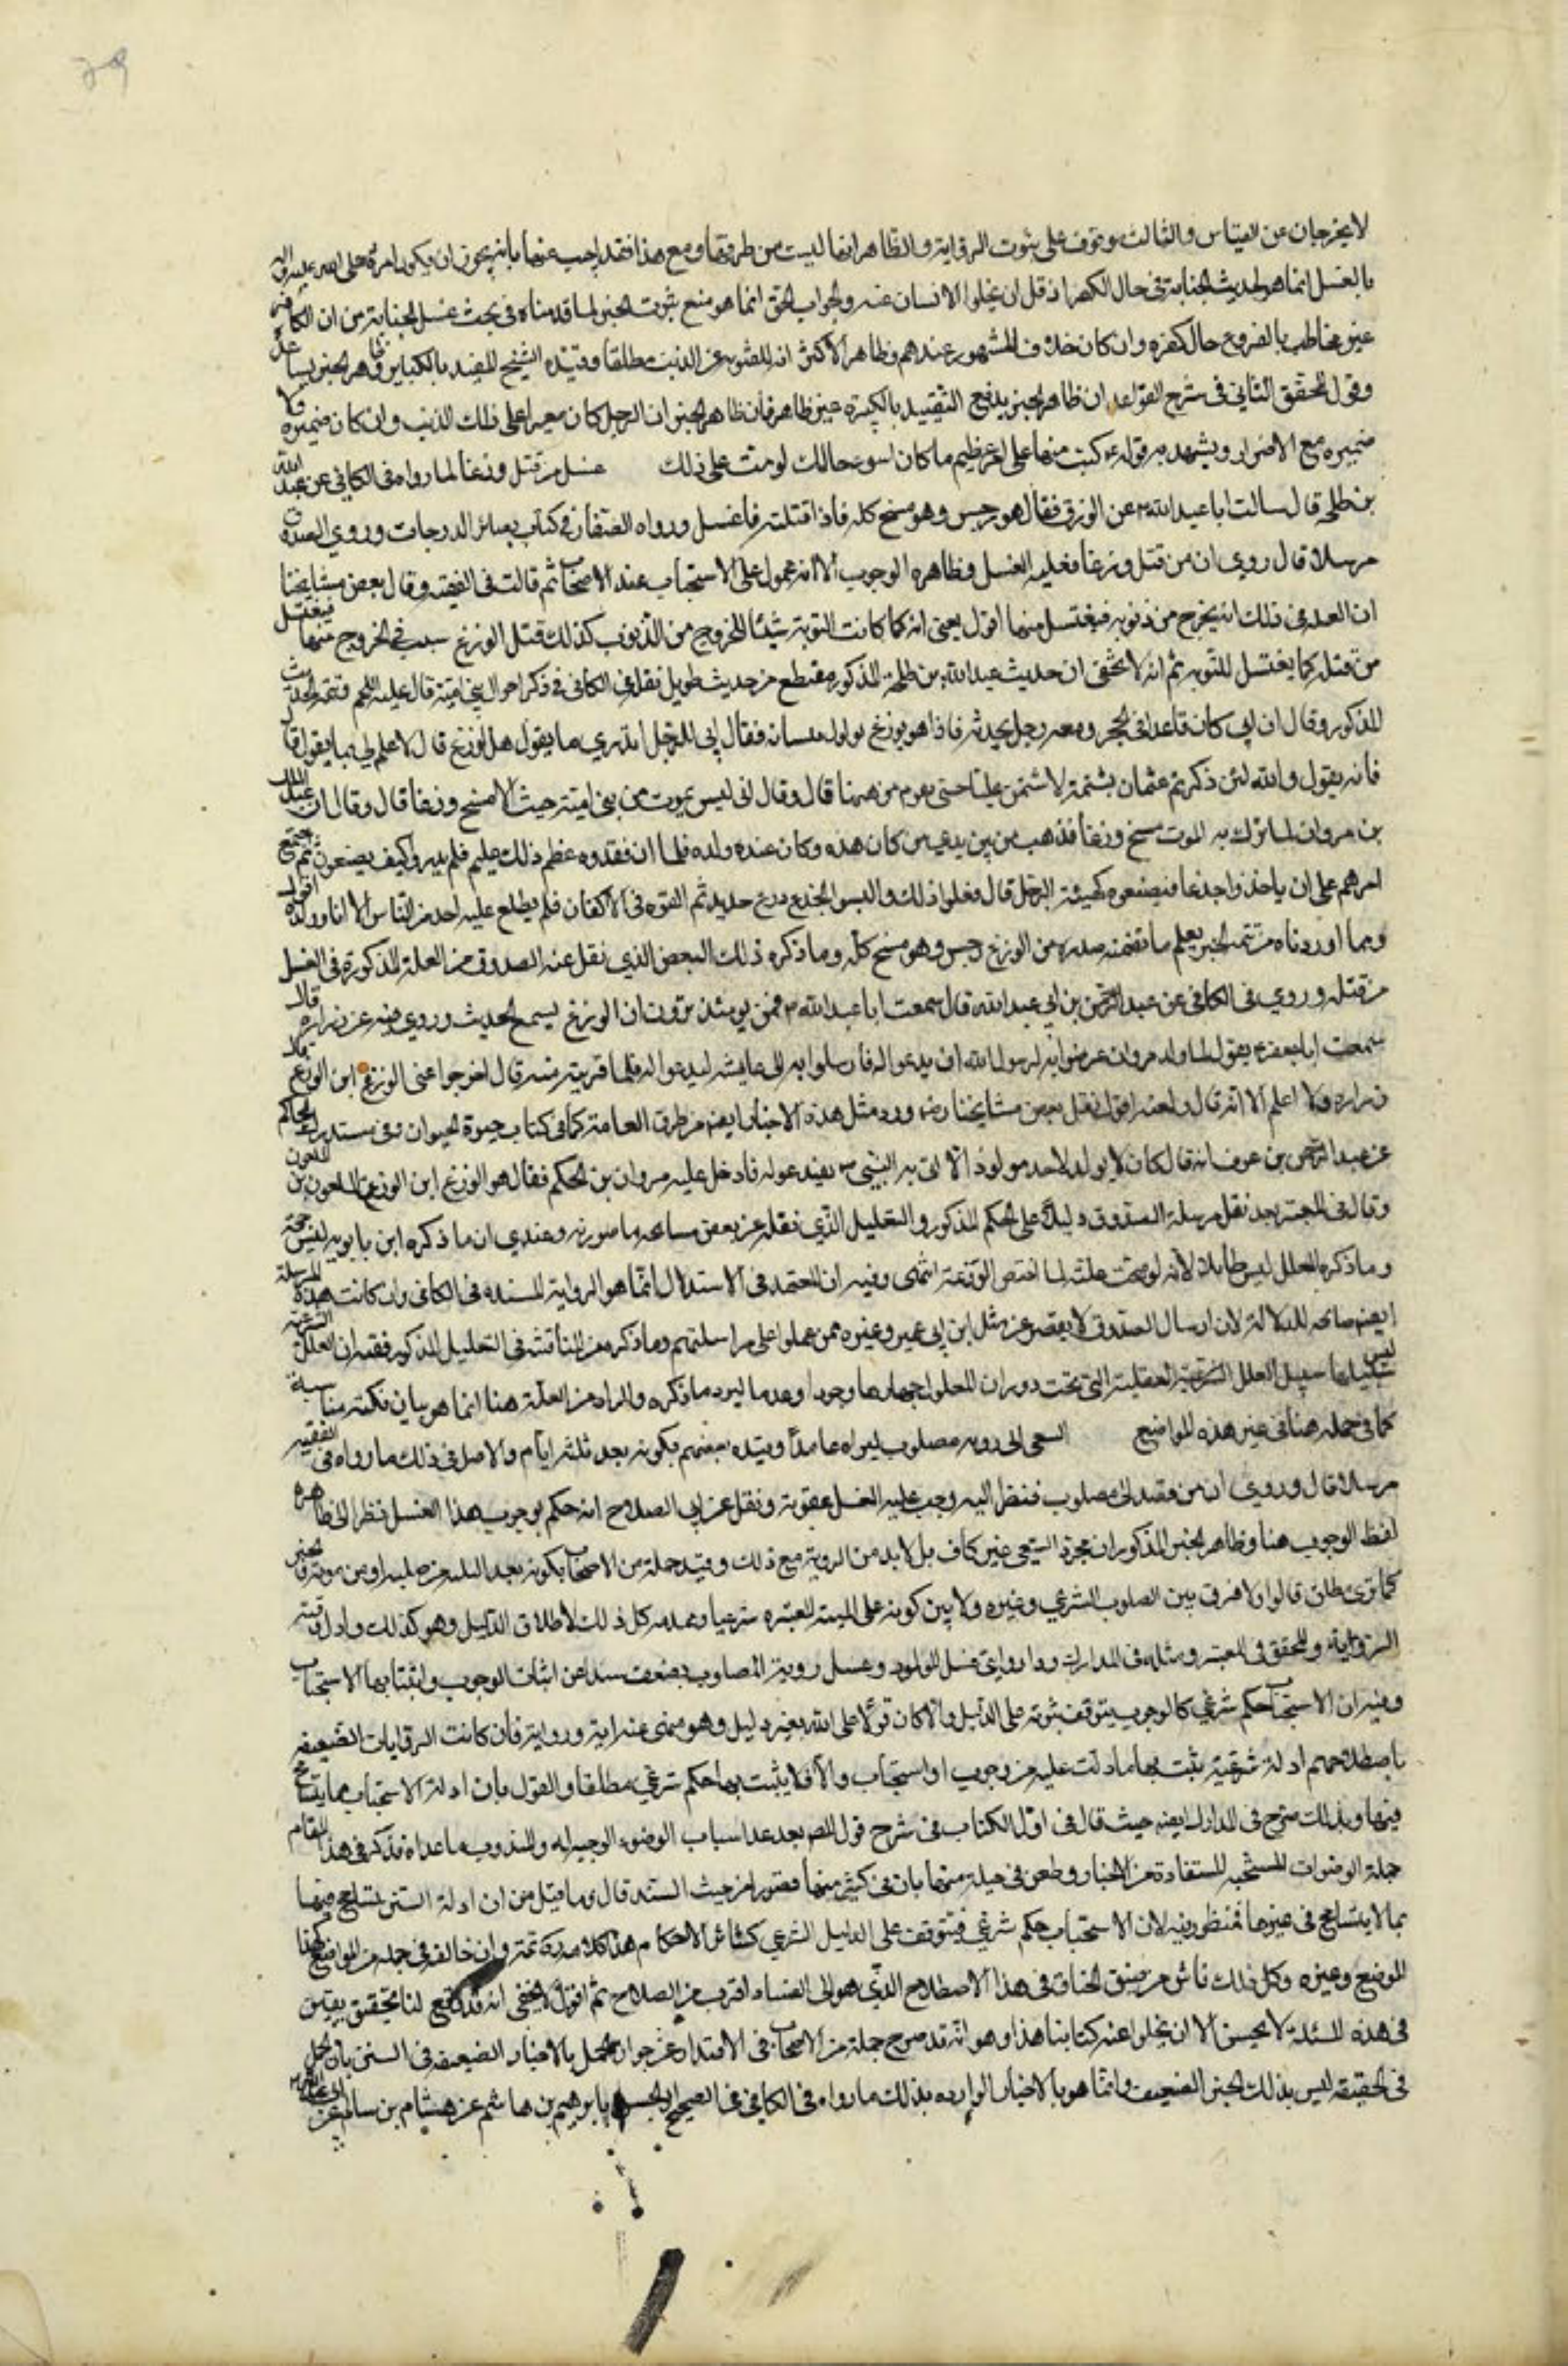 لا يخرجان عن القياس والثالث يتوقف على ثبوت الرواية والظاهر انها ليست من طرقنا ومع هذا فقد اجيب عنها بانه يجوز ان يكون امره صلى الله عليه واله
بالغسل انما هو لحديث الجنابة في حال الكفر اذ قل ان يخلو الانسان عنه والجواب الحق انما هو منع ثبوت الخبر لما قدمناه في بحث غسل الجنابة من ان الكافر
غير مخاطب بالفروع حال كفره وان كان خلاف المشهور عندهم وظاهر الاكثر انه للتوبة عن الذنب مطلقا وقيده الشيخ المفيد بالكبائر وظاهر الخبر يساعد
وقول المحقق الثاني في شرح القواعد ان ظاهر الخبر يدفع التقييد بالكبيرة غير ظاهر فان ظاهر الخبر ان الرجل كان مصرا على ذلك الذنب وان كان صغيرة ولا
صغيرة مع الاصرار ويشهد به قوله ع كنت مقيما على امر عظيم ما كان اسوء حالك لو مت على ذلك غسل من قتل وزغا لما رواه في الكافي عن عبد الله
بن طلحة قال سالت ابا عبد الله ع عن الوزغ فقال هو رجس وهو مسخ كله فاذا قتلته فاغتسل ورواه الصفار في كتاب بصائر الدرجات وروى الصدوق
مرسلا قال روي ان من قتل وزغا فعليه الغسل وظاهره الوجوب الا انه محمول على الاستحباب عند الاصحاب ثم قال في الفقيه وقال بعض مشايخنا
ان العلة في ذلك انه يخرج من ذنوبه فيغتسل منها اقول يعني انه كما كانت التوبة سببا للخروج من الذنوب كذلك قتل الوزغ سبب في الخروج منها فيغتسل
من قتله كما يغتسل للتوبة ثم انه لا يخفى ان حديث عبد الله بن طلحة المذكور مقتطع من حديث طويل نقله في الكافي في ذكر احوال بني امية قال عليه السلام في تتمة الحديث
المذكور وقال ان ابي كان قاعدا في الحجر ومعه رجل يحدثه فاذا هو بوزغ يولول بلسانه فقال ابي للرجل اتدري ما يقول هذا الوزغ قال لا علم لي بما يقول قال
فانه يقول والله لئن ذكرتم عثمان بشتيمة لاشتمن عليا حتى يقوم من ههنا قال وقال ابي ليس يموت من بني امية ميت الا مسخ وزغا قال وقال ان عبد الملك
بن مروان لما نزل به الموت مسخ وزغا فذهب من بين يدي من كان عنده وكان عنده ولده فلما ان فقدوه عظم ذلك عليهم فلم يدروا كيف يصنعون ثم اجتمع
امرهم على ان ياخذوا جذعا فيصنعوه كهيئة الرجل قال ففعلوا ذلك والبسوا الجذع درع حديد ثم القوه في الاكفان فلم يطلع عليه احد من الناس الا انا وولده اقول
وبما اوردناه من تتمة الخبر يعلم ما تضمنه صدره من الوزغ رجس وهو مسخ كله وما ذكره ذلك البعض الذي نقل عنه الصدوق من العلة المذكورة في الغسل
من قتله وروى في الكافي عن عبد الرحمن بن ابي عبد الله قال سمعت ابا عبد الله ع فمن يومئذ يرون ان الوزغ يسمع الحديث وروى فيه عن زرارة قال
سمعت ابا جعفر ع يقول لما ولد مروان عرضوا به لرسول الله ان يدعو له فارسلوا به الى عايشه ليدعو له فلما قربته منه قال اخرجوا عني الوزغ ابن الوزغ قال
زرارة ولا اعلم الا انه قال ولعنه اقول نقل بعض مشايخنا رضه ورود مثل هذه الاخبار ايضا من طرق العامة كما في كتاب حيوة الحيوان وفي مستدرك الحاكم
عن عبد الرحمن بن عوف انه قال كان لا يولد لاحد مولود الا اتى به النبي ص فيدعو له فادخل عليه مروان بن الحكم فقال هو الوزغ ابن الوزغ الملعون بن الملعون
وقال في المعتبر بعد نقل مرسلة الصدوق دليلا على الحكم المذكور والتعليل الذي نقله عن بعض مشايخه ما صورته وعندي ان ما ذكره ابن بابويه ليس حجة
وما ذكره المعلل ليس طائلا لانه لو صحت علته لما اختص الوزغة انتهى وفيه ان المعتمد في الاستدلال انما هو الرواية المسندة في الكافي وان كانت هذه المرسلة
ايضا صالحة للدلالة لان ارسال الصدوق لا يقصر عن مثل ابن ابي عمير وغيره ممن عملوا على مراسلتهم وما ذكره من المناقشة في التعليل المذكور ففيه ان العلل الشرعية
ليس سبيلها سبيل العلل العقلية التي يجب دوران المعلول مدارها وجودا وعدما ليرد ما ذكره والمراد من العلة هنا انما هو بيان نكتة مناسبة
كما في جملة هنا في غير هذه المواضع السعي الى روية مصلوب ليراه عامدا وقيده بعضهم بكونه بعد ثلثة ايام والاصل في ذلك ما رواه في الفقيه
مرسلا قال وروي ان من قصد الى مصلوب فنظر اليه وجب عليه الغسل عقوبة ونقل عن ابي الصلاح انه حكم بوجوب هذا الغسل نظرا الى ظاهر
لفظ الوجوب هنا وظاهر الخبر المذكور ان مجرد السعي غير كاف بل لا بد من الروية مع ذلك وقيد جملة من الاصحاب بكونه بعد الثلثة من صلبه او من موته والخبر
كما ترى مطلق قالوا ولا فرق بين المصلوب الشرعي وغيره ولا بين كونه على الهيئة المعتبرة شرعا وعدمه كل ذلك لاطلاق الدليل وهو كذلك
الرواية والمحقق في المعتبر ومثله في المدارك ردا روايتي غسل المولود وغسل روية المصلوب بضعف السند عن اثبات الوجوب واثبتا بها الاستحباب
وفيه ان الاستحباب حكم شرعي كالوجوب يتوقف ثبوته على الدليل والا كان قولا على الله بغير دليل وهو منهي عنه اية ورواية فان كانت الروايات الضعيفة
باصطلاحهم ادلة شرعية يثبت بها ما دلت عليه من وجوب او استحباب والا فلا يثبت بها حكم شرعي مطلقا والقول بان ادلة الاستحباب مما يتسامح
فيها وبذلك صرح في المدارك ايضا حيث قال في اول الكتاب في شرح قول المص بعد عد اسباب الوضوء الواجب والمندوب ما عداه فذكر في هذا المقام
جملة الوضوات المستحبة المستفادة من الاخبار وطعن في جملة منها بان في كثير منها قصورا من حيث السند قال وما قيل من ان ادلة السنن يتسامح فيها
بما لا يتسامح في غيرها فمنظور فيه لان الاستحباب حكم شرعي فيتوقف على الدليل الشرعي كسائر الاحكام هذا كلامه ثمة وان خالفه في جملة من المواضع كهذا
الموضع وغيره وكل ذلك ناش من ضيق الخناق في هذا الاصطلاح الذي هو الى الفساد اقرب من الصلاح ثم اقول لا يخفى انه قد وقع لنا تحقيق نفيس
في هذه المسئلة لا يحسن الا ان يخلو عنه كتابنا هذا وهو انه قد صرح جملة من الاصحاب في الاعتذار عن جواز العمل بالاخبار الضعيفة في السنن بان العمل
في الحقيقة ليس بذلك الخبر الضعيف وانما هو بالاخبار الواردة بذلك ما رواه في الكافي في الصحيح او الحسن بابراهيم بن هاشم عن هشام بن سالم عن ابي عبد الله ع